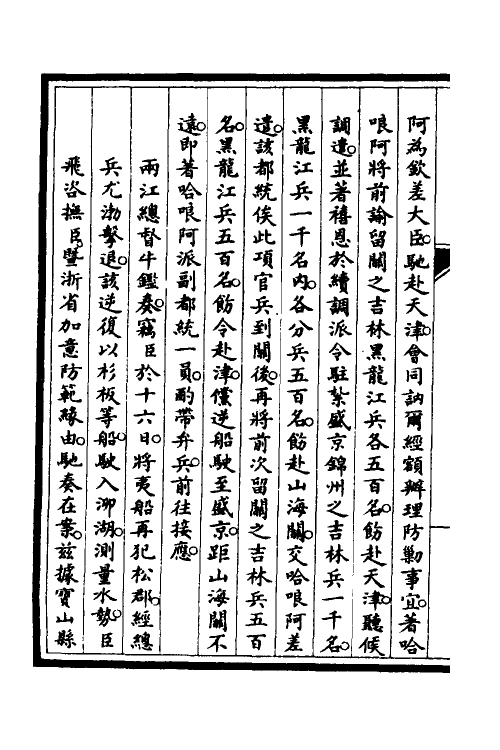 阿為欽差大臣。馳赴天津。會同訥爾經額辦理防勦事宜。著哈
哴阿將前諭留關之吉林黑龍江兵各五百名。飭赴天津。聽候
調遣。並著禧恩於續調派令駐紮盛京錦州之吉林兵一千名。
黑龍江兵一千名內。各分兵五百名。飭赴山海關。交哈哴阿差
遣。該都統俟此項官兵到關後。再將前次留關之吉林兵五百
名。黑龍江兵五百名。飭令赴津。儻逆船駛至盛京。距山海關不
遠。即著哈哴阿派副都統一員。酌帶弁兵。前往接應。
兩江總督牛鑑奏。竊臣於十六日。將夷船再犯松郡。經總
兵尤渤擊退。該逆復以杉板等船。駛入泖湖。測量水勢。臣
飛咨撫臣。暨浙省加意防範緣由。馳奏在案。茲據寶山縣